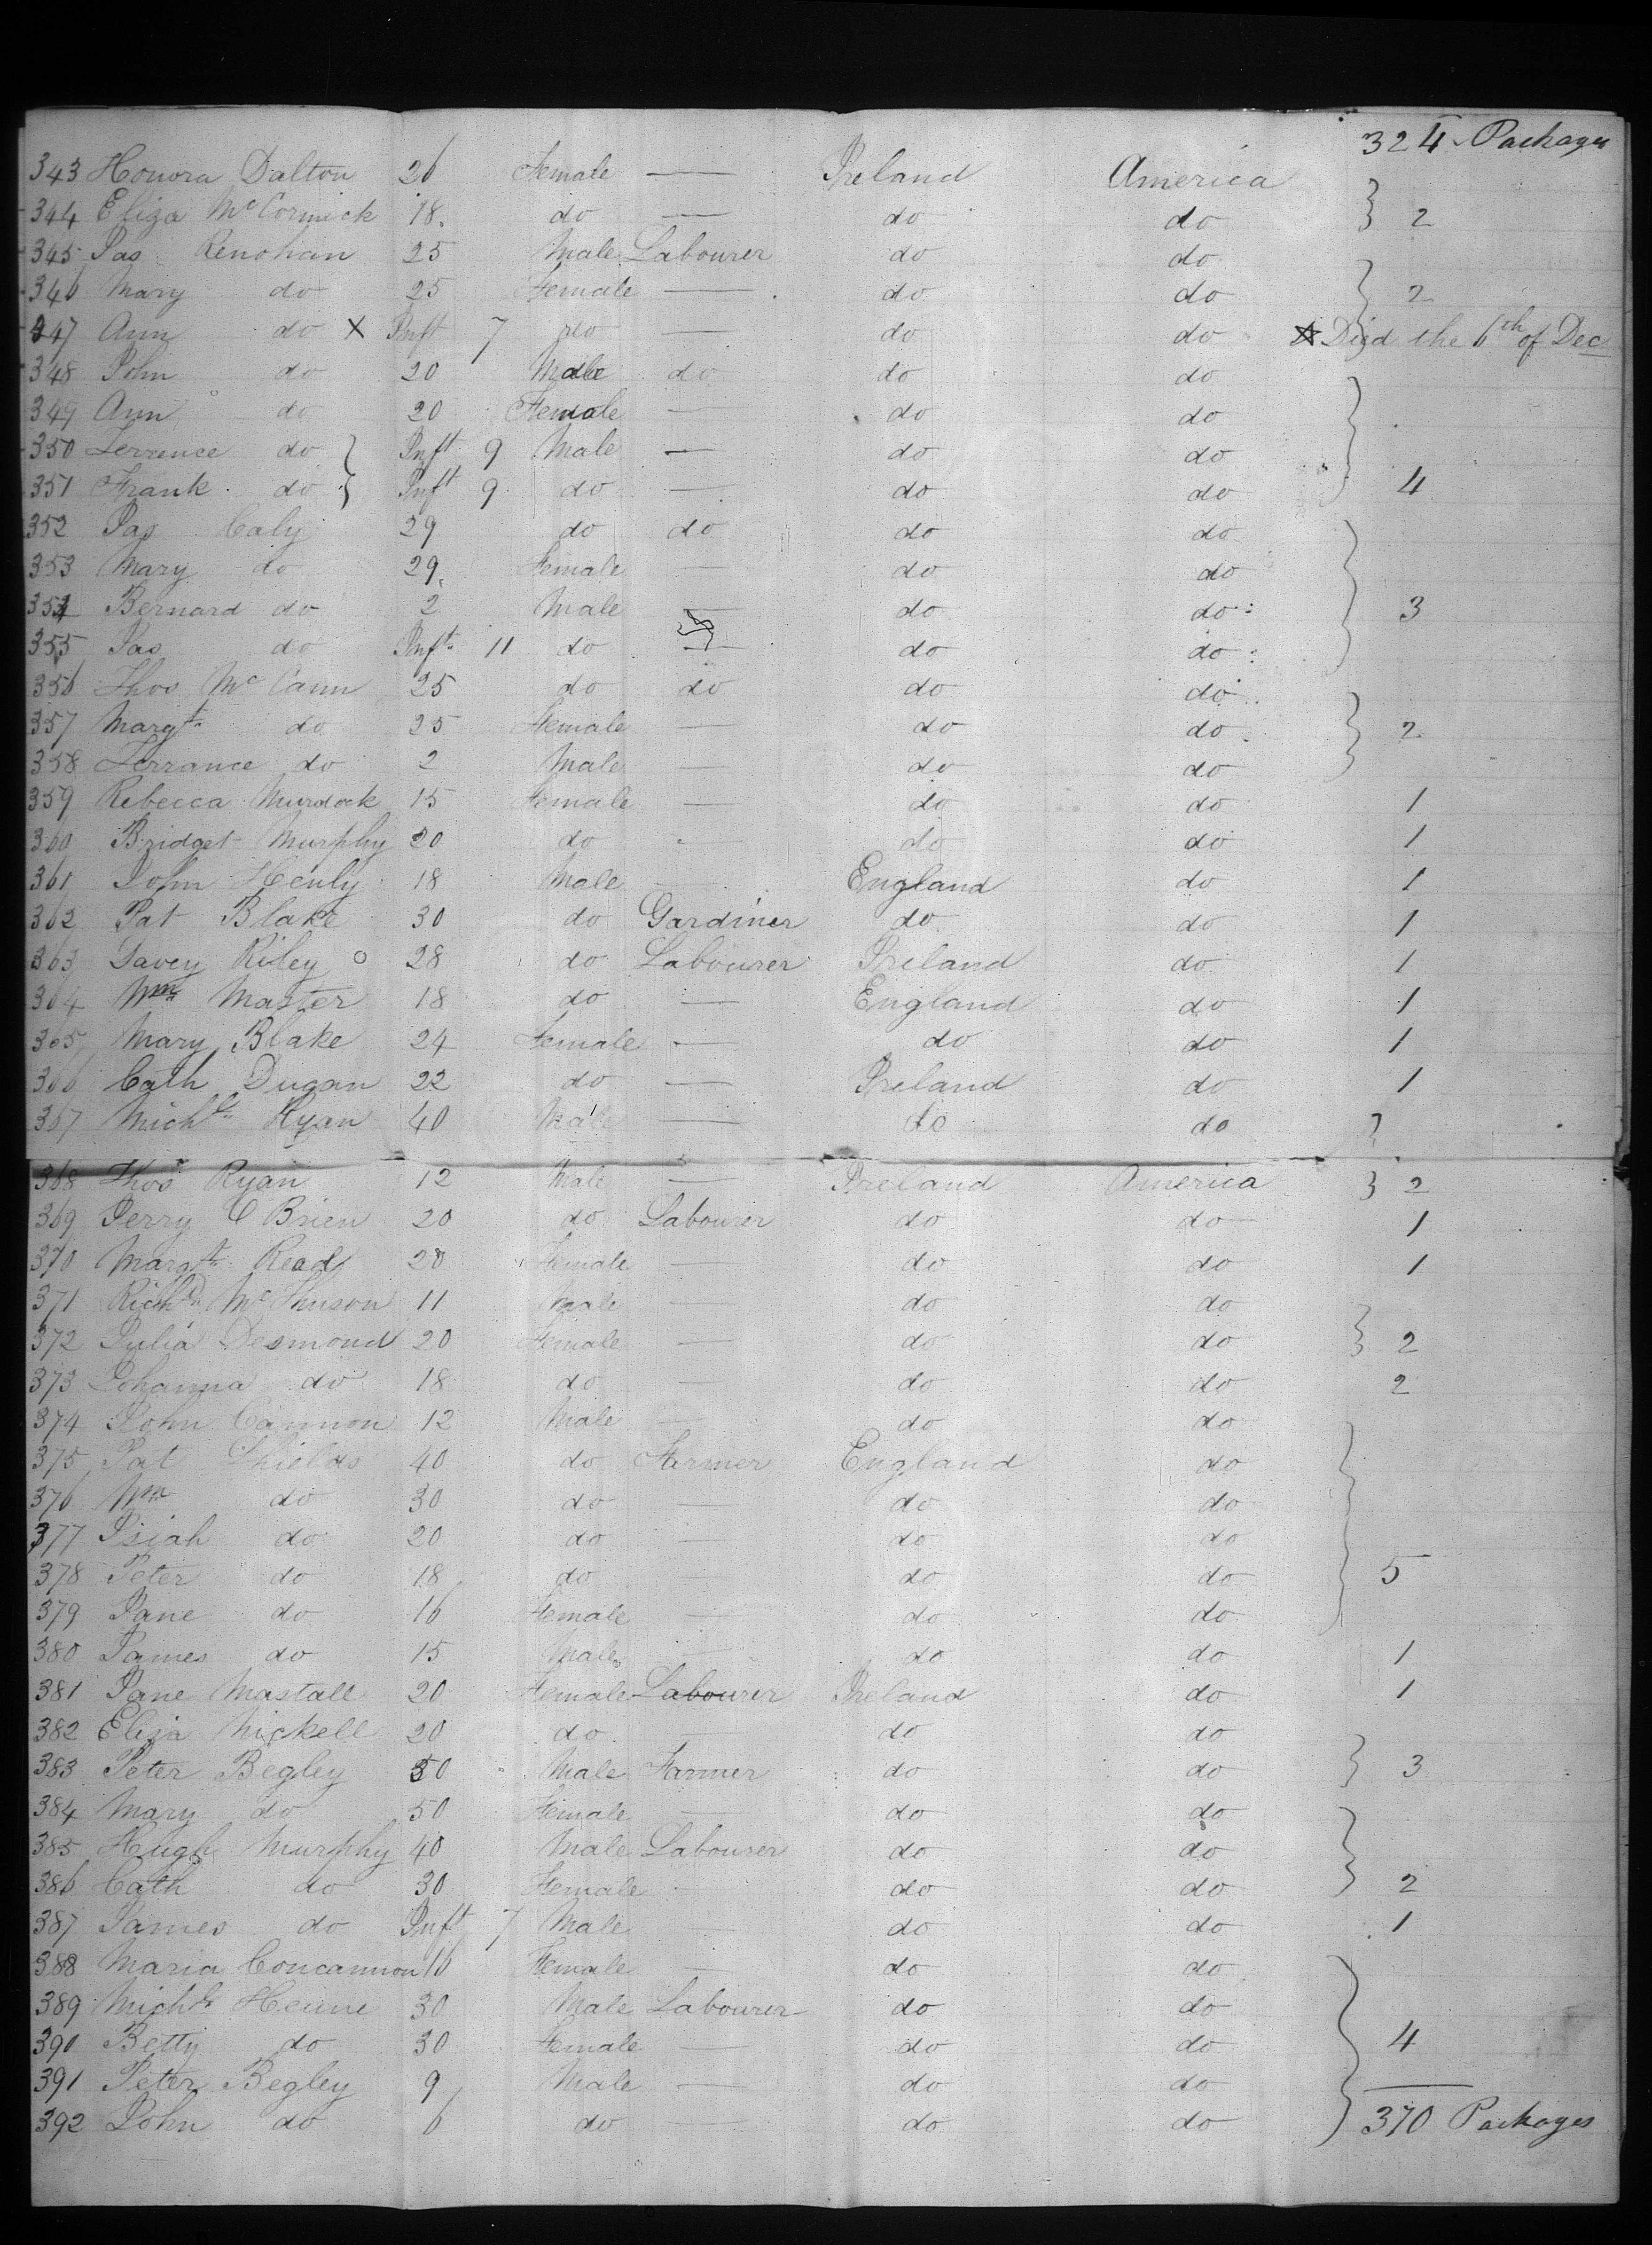 324 Packages
343 Honora Dalton 26 Female — Ireland America
344 Eliza McCormick 18 do — do do } 2
345 Jas Renohan 25 Male Labourer do do
346 Mary do 25 Female — do do } 2
347 Ann do X Inft 7 do — do do Died the 6th of Dec
348 John do 20 Male do do do
349 Ann do 20 Female — do do
350 Terrence do } Inft 9 Male — do do
351 Frank do } Inft 9 do — do do } 4
352 Jas Caly 29 do do do do
353 Mary do 29 Female — do do
354 Bernard do 2 Male — do do } 3
355 Jas do Inft 11 do — do do
356 Thos McCann 25 do do do do
357 Margt do 25 Female — do do } 2
358 Terrance do 2 Male — do do
359 Rebecca Murdock 15 Female — do do 1
360 Bridget Murphy 20 do - do do 1
361 John Henly 18 Male England do 1
362 Pat Blake 30 do Gardiner do do 1
363 Savey Riley o 28 do Labourer Ireland do 1
364 Wm Master 18 do — England do 1
365 Mary Blake 24 Female — do do 1
366 Cath Dugan 22 do — Ireland do 1
367 Michl Ryan 40 Male — do do }
368 Thos Ryan 12 Male — Ireland America } 2
369 Perry O Brien 20 do Labourer do do 1
370 Margt Read 20 Female — do do 1
371 Richd Male — do do
372 Julia Desmond 20 Female — do do } 2
373 Johanna do 18 do — do do 2
374 John Cannon 12 Male — do do
375 Pat Shields 40 do Farmer England do
376 Wm do 30 do — do do
377 Isiah do 20 do — do do
378 Peter do 18 do — do do } 5
379 Jane do 16 Female — do do
380 James do 15 Male — do do 1
381 Jane Mastall 20 Female Labourer Ireland do 1
382 Eliza Nickell 20 do — do do
383 Peter Begley 50 Male Farmer do do } 3
384 Mary do 50 Female — do do
385 Hugh Murphy 40 Male Labourer do do
386 Cath do 30 Female - do do } 2
387 James do Inft 7 Male — do do 1
388 Maria Concannon 16 Female — do do
389 Michl Heune 30 Male Labourer do do
390 Betty do 30 Female — do do } 4
391 Peter Begley 9 Male — do do
392 John do 6 do — do do 370 Packages